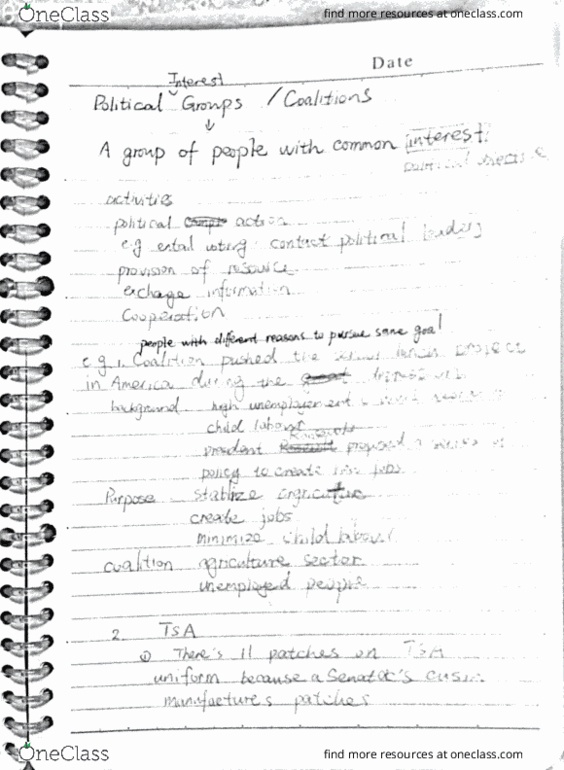 OneClass
find more resources at oneclass.com
Date
Interest
Political Groups / Coalitions
A group of people with common interest
activities
political action
e.g voting contact political leaders
provision of resource
exchange information
Cooperation
people with different reasons to pursue same goal
e.g 1. Coalition pushed the project
in America during the
background high unemployment
child labour
president proposed a series of
policy to create jobs
Purpose stablize
create jobs
minimize child labour
coalition agriculture sector
unemployed people
2. TSA
① There's 11 patches on TSA
uniform because a Senator's
manufactures patches
OneClass
find more resources at oneclass.com